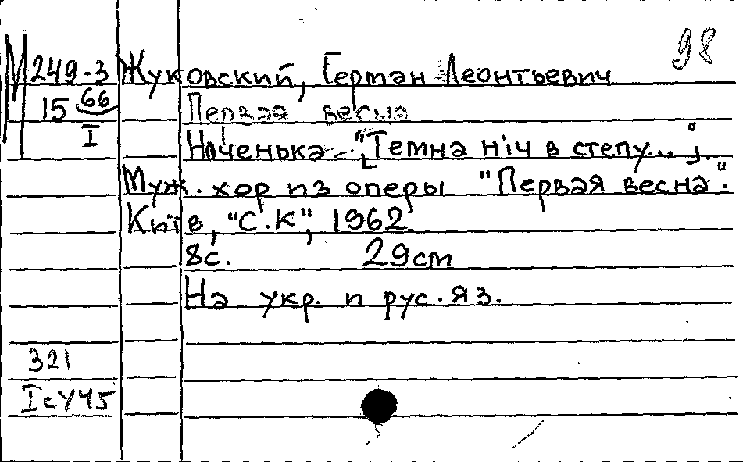 98
М 249-3 Жуковский, Герман Леонтьевич
15 66 Первая весна
I Ніченька ["Темна ніч в степу..."].
Муж. хор из оперы "Первая весна".
Київ, "С.К", 1962.
8с. 29см
На укр. и рус. яз.
321